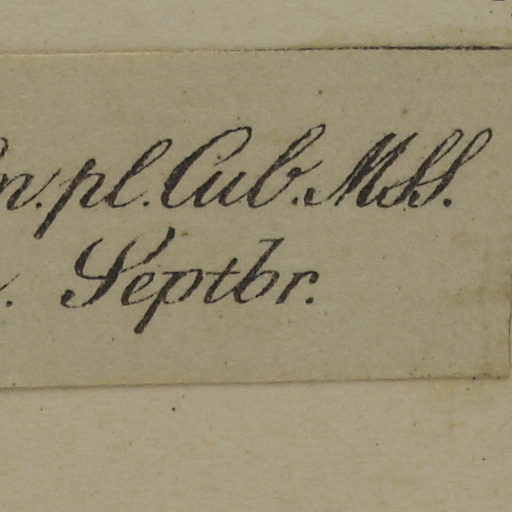 n. pl. Cub. MSS.
. Septbr.